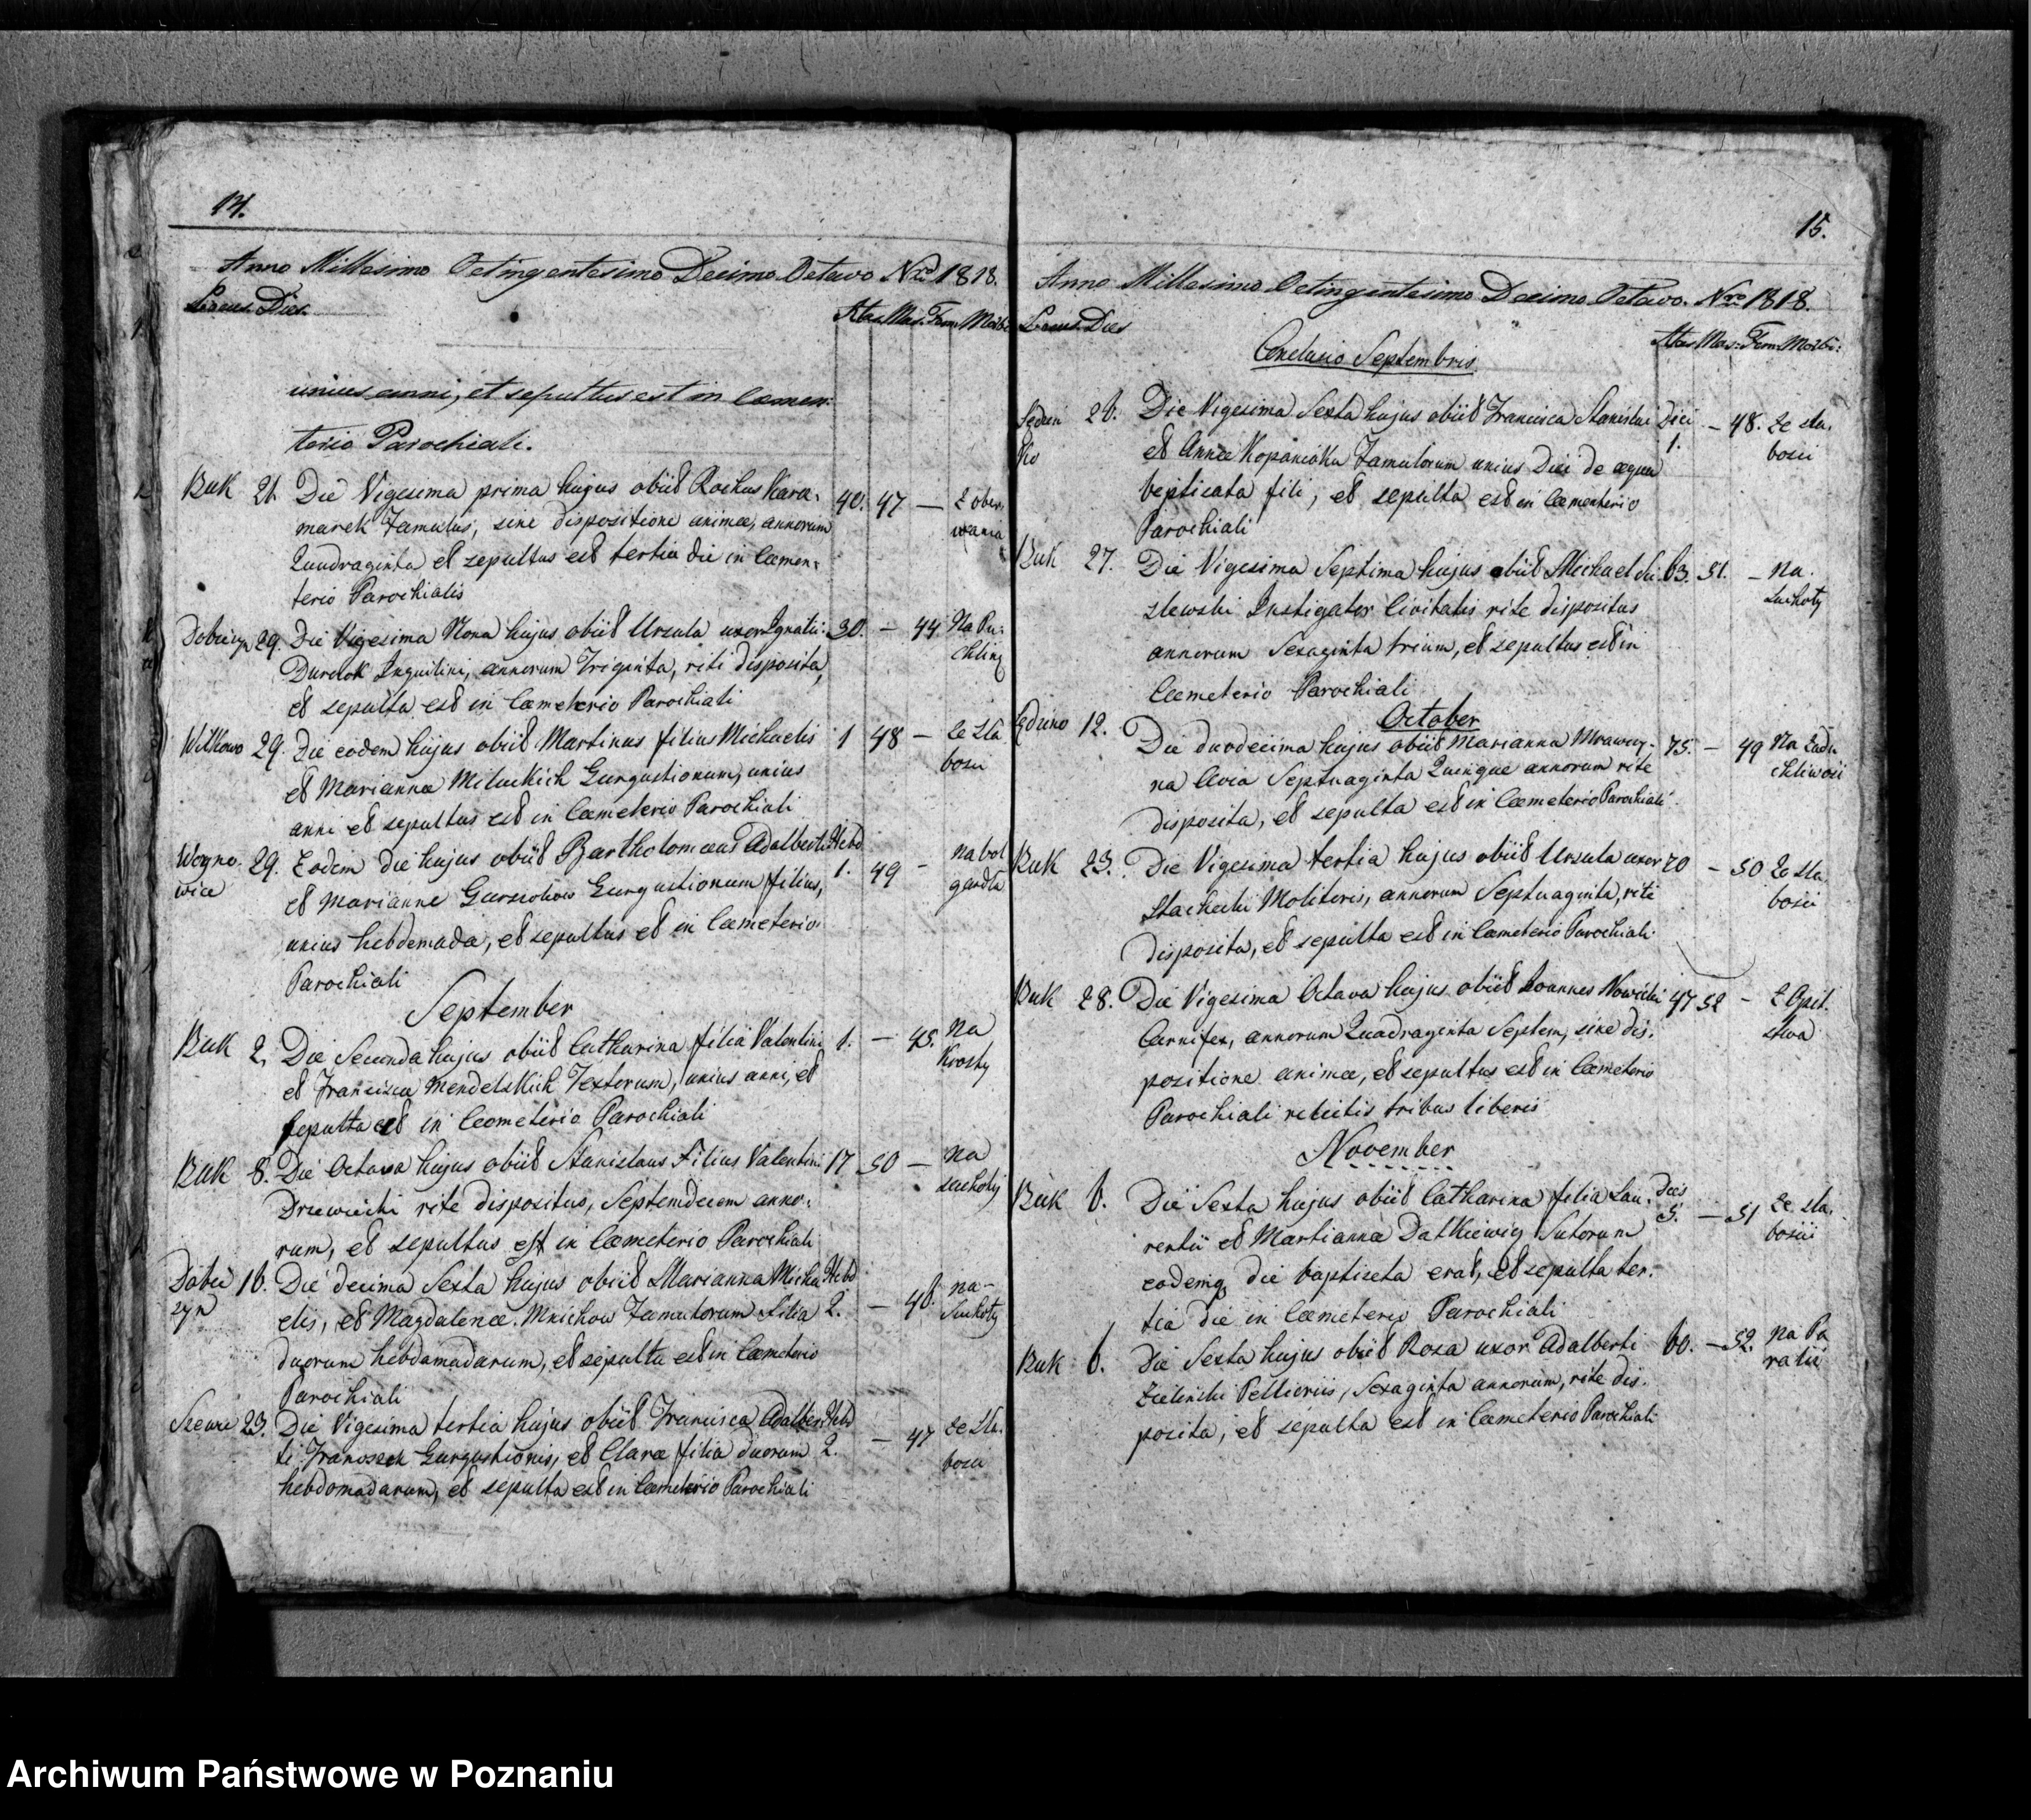 14.
Anno Millesimo Octingentesimo Decimo Octavo Nro 1818.
Locus Dies. Aetas Mas. Fem. Morbi
unius anni, et sepultus est in Coemen:
terio Parochiali.
Buk 21. Die Vigesima prima hujus obiit Rochus Karcz: 40. 47 — Z ober:
marek Famulus, sine dispositione animae, annorum wania
Quadraginta et sepultus est tertia die in Coemen:
terio Parochialis
Dobieżyn 29. Die Vigesima Nona hujus obiit Ursula uxor Ignatii: 30. — 44 Na Pu:
Durelok Inquilini, annorum Triginta, riti disposita, chling
et sepulta est in Coemeterio Parochiali
Wilkowo 29. Die eodem hujus obiit Martinus filius Michaelis 1 48 — Ze Sła
et Marianna Miluckich Gurgustionum, unius bosci
anni et sepultus est in Coemeterio Parochiali
Wogno: 29. Eodem die hujus obiit Bartholomaeus Adalberti Hebd 1. 49 — na bol
wice et Marianne Gurgustionum filius, gardła
unius hebdomada, et sepultus est in Coemeterio
Parochiali
September
Buk 2. Die Secunda hujus obiit Catharina filia Valentini 1. — 45. Na
et Francisca Mendelskich Textorum, unius anni, et Krosty
sepulta est in Coemeterio Parochiali
Buk 8. Die Octava hujus obiit Stanislaus Filius Valentini 17 50 — Na
Drzewiecki rite dispositus, Septemdecem anno: suchoty
rum, et sepultus est in Coemeterio Parochiali
Dobie 16. Die decima Sexta hujus obiit Marianna Micha Hebd
zyn elis, et Magdalenae Mnichow Famulorum Filia 2. — 46. na Suchoty
duorum hebdomadarum, et sepulta est in Coemeterio
Parochiali
Szewce 23. Die Vigesima tertia hujus obiit Francisca Adalber Hebd
ti Franoszek Gurgustionis, et Clara filia duorum 2. — 47 ze Sła:
hebdomadarum, et sepulta est in Coemeterio Parochiali bosci
15.
Anno Millesimo Octingentesimo Decimo Octavo. Nro 1818.
Locus Dies Aetas Mas: Fem: Morbi:
Conclusio Septembris
26. Die Vigesima Sexta hujus obiit Francisca Stanislai Diei — 48. Ze sła:
Ko et Annae Kopaniaka Famulorum unius Diei de aqua 1. bosci
baptisata fili, et sepulta est in Coementerio
Parochiali
Buk 27. Die Vigesima Septima hujus obiit Michael 63. 51. — Na
Instigator Civitatis rite dispositus Suchoty
annorum Sexaginta trium, et sepultus est in
Coemeterio Parochiali
October
12. Die duodecima hujus obiit Marianna Mrawczy: 75. — 49 Na Zadu
na Avia Septuaginta Quinque annorum rite chliwosi
disposita, et sepulta est in Coemeterio Parochiali
Buk 23. Die Vigesima tertia hujus obiit Ursula uxor 70 — 50 Ze sła:
Molitoris, annorum Septuaginta, rite bosci
disposita, et sepulta est in Coemeterio Parochiali
Buk 28. Die Vigesima Octava hujus obiit Joannes Nowicki 47 52 — Z Opil:
Carnifex, annorum Quadraginta Septem, sine dis: stwa
positione animae, et sepultus est in Coemeterio
Parochiali relictis tribus liberis
November
Buk 6. Die Sexta hujus obiit Catharina filia Lau: Dies
rentii et Martianna Datkiewicz Sutorum 5. — 51 Ze sła:
eodemq die baptiseta erat, et sepulta ter: bosci
tia die in Coemeterio Parochiali
Buk 6. Die Sexta hujus obiit Rosa uxor Adalberti 60. — 52. Na Pa
Zielinski Pellioniis, Sexaginta annorum, rite dis: raliż
posita, et sepulta est in Coemeterio Parochiali
Archiwum Państwowe w Poznaniu